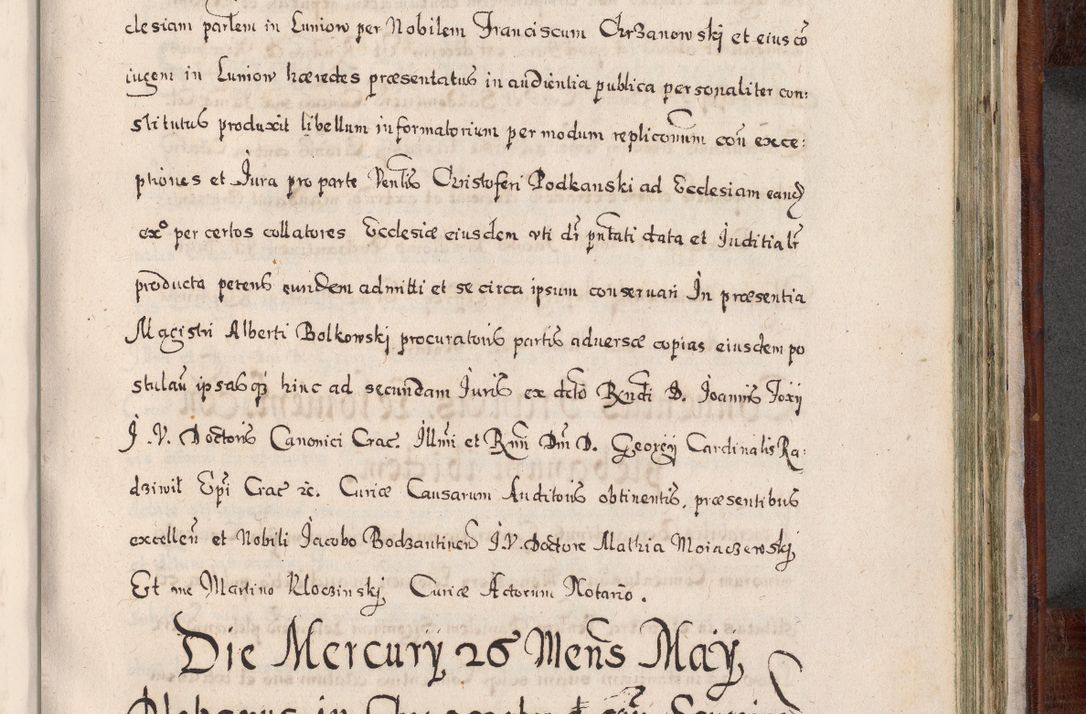 clesiam partem in Luniow per Nobilem Franciscum Chrzanowskj et eius co
iugem in Luniow hæredes præsentatus in audientia publica personaliter con:
stitutus produxit libellum informatorium per modum repliconum con exce:
ptiones et Jura pro parte Ventis Christoferi Podkanski ad Ecclesiam eand
exo per certos collatores Ecclesiæ eiusdem vti dr pntati data et Juditialr
producta petens eundem admitti et se circa ipsum conseruari In præsentia
Magistri Alberti Bolkowskj procuratoris partis aduersæ copias eiusdem po
stulan ipsasq hinc ad secundam Juris ex dcto Rndi D. Joannis Foxij
J. V. Doctoris Canonici Crac. Illmi et Rmi Dni D. Georgij Cardinalis Ra:
dziwil Epi Crac etc. Curiæ Causarum Auditoris obtinentis, præsentibus
excellen et Nobili Jacobo Bodzantinen J. V. Doctore Mathia Moiaczewskj,
Et me Martino Kloczinskj, Curiæ Actorum Notario.
Die Mercurij 26 Mens Maij,
Plebanus in